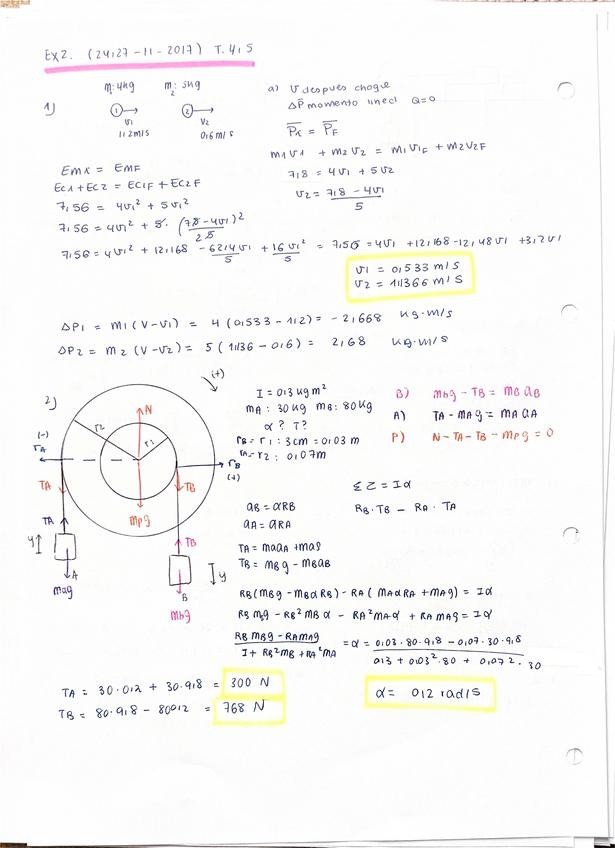 Ex2. (24,27-11-2017) T.4,5
m1: 4kg m2: 5kg
1)
① ②
v1 v2
1,2m/s 0,6m/s
a) v despues choque
ΔP momento lineal Q=0
P̄i = P̄F
m1v1 + m2v2 = m1v1F + m2v2F
7,8 = 4v1 + 5v2
v2 = (7,8 - 4v1)/5
EMi = EMF
Ec1+Ec2 = Ec1F+Ec2F
7,56 = 4v1² + 5v1²
7,56 = 4v1² + 5 · (7,8-4v1)²/25
7,56 = 4v1² + 12,168 - 62,4v1/5 + 16v1²/5 = 7,56 = 4v1 + 12,168 - 12,48v1 + 3,2v1
v1 = 0,533 m/s
v2 = 1,1366 m/s
ΔP1 = m1(v-v1) = 4(0,533-1,2) = -2,668 kg·m/s
ΔP2 = m2(v-v2) = 5(1,136-0,6) = 2,68 kg·m/s
2)
(+)
N
r2
r1
(-)
rA
rB
(+)
TA
TB
Mpg
TA
TB
y
A
mag
B
y
mbg
I = 0,3 kg m²
mA: 30kg mB: 80kg
α? T?
rB = r1: 3cm = 0,03 m
rA = r2: 0,07m
B) mbg - TB = mB aB
A) TA - mAg = mA aA
P) N - TA - TB - mpg = 0
Στ = Iα
RB·TB - RA·TA
aB = αRB
aA = αRA
TA = maaA + mag
TB = mBg - mBaB
RB(mBg - mBαRB) - RA(mAαRA + mAg) = Iα
RB mBg - RB²mBα - RA²mAα + RAmAg = Iα
(RB mBg - RAmAg)/(I + RB²mB + RA²mA) = α = (0,03·80·9,8 - 0,07·30·9,8)/(0,3 + 0,03²·80 + 0,07²·30)
TA = 30·0,2 + 30·9,8 = 300 N
TB = 80·9,8 - 80·0,2 = 768 N
α = 0,2 rad/s